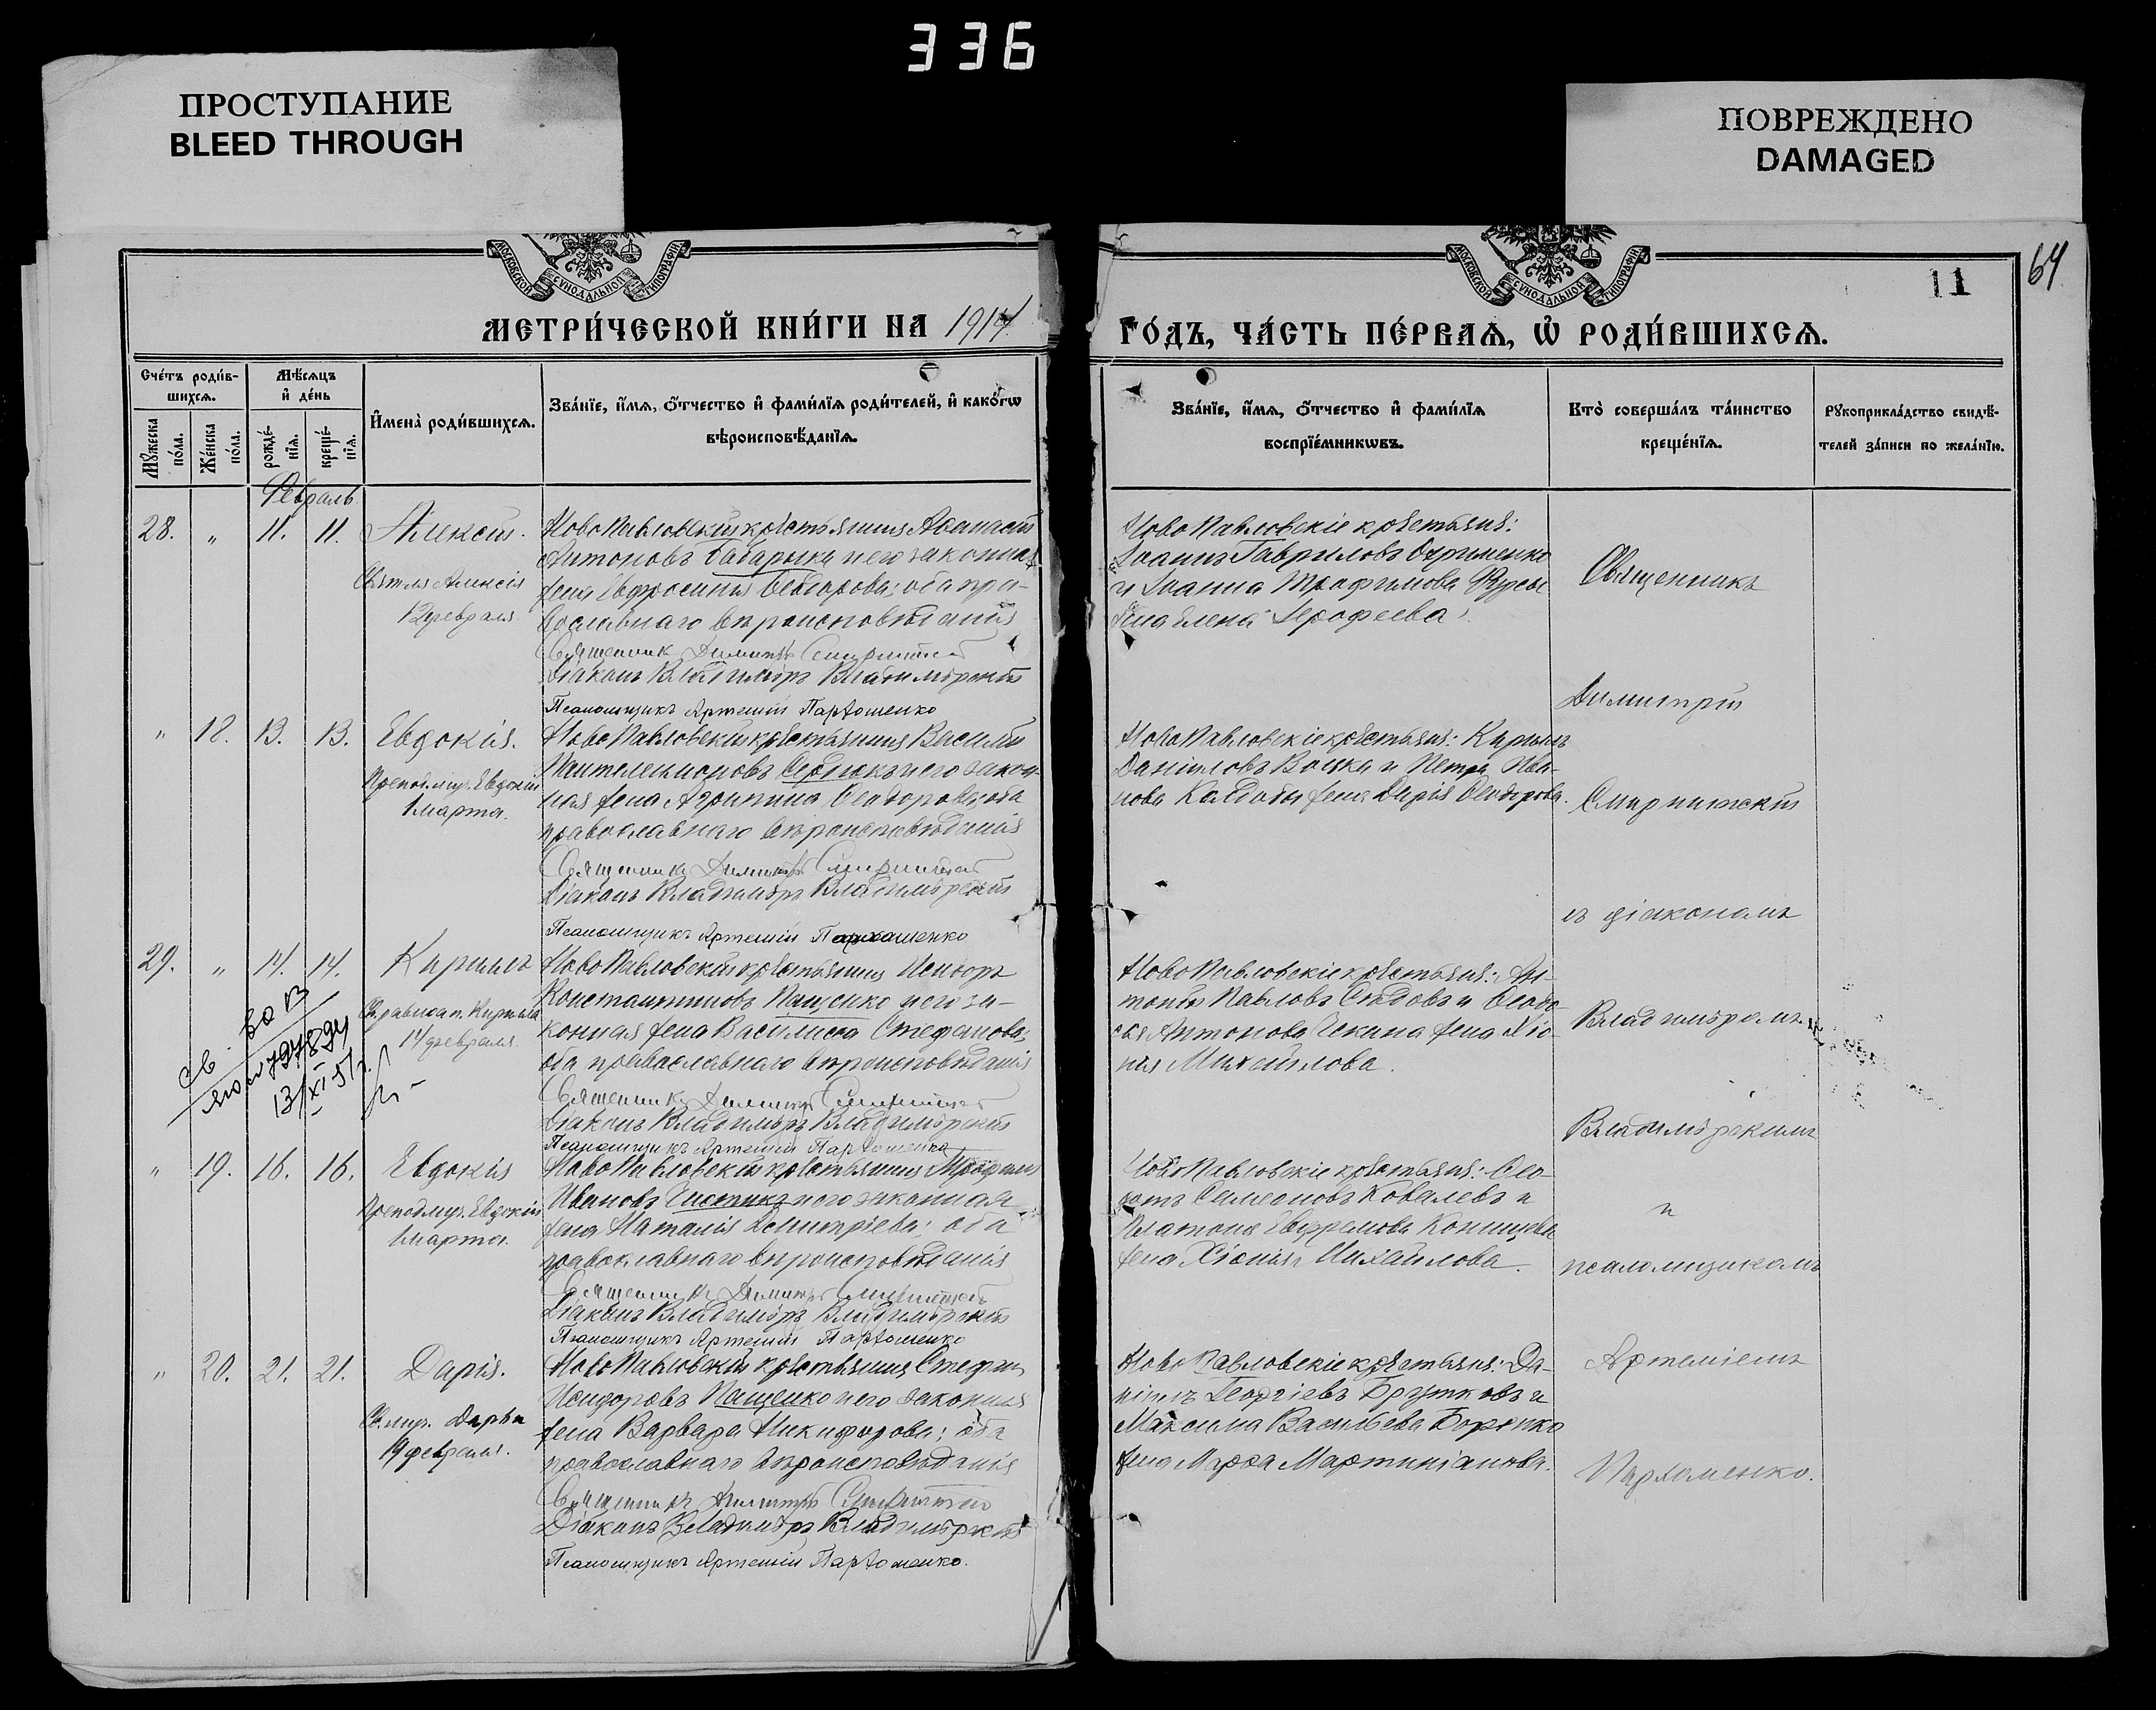 336
ПРОСТУПАНИЕ
BLEED THROUGH
ПОВРЕЖДЕНО
DAMAGED
МОСКОВСКОЙ СѴНОДАЛЬНОЙ ТИПОГРАФІИ
МОСКОВСКОЙ СѴНОДАЛЬНОЙ ТИПОГРАФІИ
11
64
МЕТРИ́ЧЕСКОЙ КНИ́ГИ НА 1914
ГО́ДЪ, ЧА́СТЬ ПЕ́РВАѦ, Ѡ҆ РОДИ́ВШИХСѦ.
Сче́тъ роди́в-
шихсѧ.
Мѣ́сѧцъ
и҆ де́нь
Мꙋ́жеска по́ла.
Же́нска по́ла.
рожде́-
нїѧ.
креще́-
нїѧ.
И҆мена̀ роди́вшихсѧ.
Зва́нїе, и҆́мѧ, ѻ҆́тчество и҆ фами́лїѧ роди́телей, и҆ како́гѡ
вѣроисповѣ́данїѧ.
Зва́нїе, и҆́мѧ, ѻ҆́тчество и҆ фами́лїѧ
воспрїе́мникѡвъ.
Кто̀ соверша́лъ та́инство
креще́нїѧ.
Рꙋкоприкла́дство свидѣ́-
телей за́писи по жела́нїю.
Февраль
28. " 11. 11. Алексій.
Святля Алексія
12 февраля.
НовоПавловскій крестьянинъ Аѳанасій
Антоновъ Бабарыка и его законная
жена Евфросинія Ѳеодорова; оба пра-
вославнаго вѣроисповѣданія
Священник Димитрій
Діаконъ Владиміръ Владимірскій
Псаломщикъ Артемій Пархоменко
НовоПавловскіе крестьяне:
Іоаннъ Гавриловъ Охрименко
и Іоанна Трофимова
жена Елена Іерофеева.
" 18. 13. 13. Евдокія.
Преподмуч. Евдокіи
1 марта.
НовоПавловскій крестьянинъ Василій
Пантелеимоновъ Сердюкъ и его закон-
ная жена Агриппина Ѳеодорова; оба
православнаго вѣроисповѣданія
Священникъ Димитрій
Діаконъ Владиміръ Владимірскій
Псаломщикъ Артемій Пархоменко
НовоПавловскіе крестьяне: Кириллъ
Даніиловъ Воцка и Петра Ива-
нова жена Дарія Ѳеодорова.
29. " 14. 14. Кириллъ
Св. равноап. Кирилла
14 февраля.
НовоПавловскій крестьянинъ Исидоръ
Константиновъ Пащенко и его за-
конная жена Василиса Стефанова;
оба православнаго вѣроисповѣданія
Священникъ Димитрій
Діаконъ Владиміръ Владимірскій
Псаломщикъ Артемій Пархоменко
НовоПавловскіе крестьяне: Ан-
тоній Павловъ Сѣдовъ и Ѳеодо-
сія Антонова Чекина жена Хіо-
нія Михайлова.
" 19. 16. 16. Евдокія
Преподмуч. Евдокіи
1 марта.
НовоПавловскій крестьянинъ Трофимъ
Ивановъ и его законная
жена Наталія Димитріева; оба
православнаго вѣроисповѣданія
Священникъ Димитрій
Діаконъ Владиміръ Владимірскій
Псаломщикъ Артемій Пархоменко
НовоПавловскіе крестьяне: Ѳео-
дотъ Симеоновъ Ковалевъ и
Платона Евфремова
жена Хіонія Михайлова.
" 20. 21. 21. Дарія.
Св. муч. Дарьи
19 февраля.
НовоПавловскій крестьянинъ Стефанъ
Исидоровъ Пащенко и его законная
жена Варвара Никифорова; оба
православнаго вѣроисповѣданія
Священникъ Димитрій
Діаконъ Владиміръ Владимірскій
Псаломщикъ Артемій Пархоменко.
НовоПавловскіе крестьяне: Да-
ніилъ Георгіевъ Брутковъ и
Максима Васильева
жена Марѳа Мартиніанова.
Священникъ
Димитрій
Смирнитскій
съ діакономъ
Владиміромъ
Владимірскимъ
и
псаломщикомъ
Артеміемъ
Пархоменко.